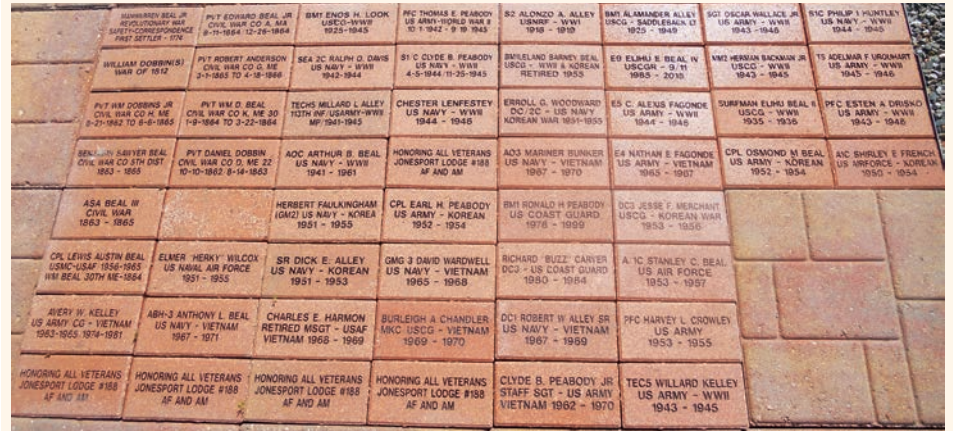 MANWARREN BEAL JR
REVOLUTIONARY WAR
SAFETY-CORRESPONDENCE
FIRST SETTLER - 1774
PVT EDWARD BEAL JR
CIVIL WAR CO A, MA
8-11-1864 / 12-26-1864
BM1 ENOS H. LOOK
USCG-WWII
1925-1945
PFC THOMAS E. PEABODY
US ARMY-WORLD WAR II
10 1 1942 - 9 19 1945
S2 ALONZO A. ALLEY
USNRF - WWI
1918 - 1919
BM1 ALAMANDER ALLEY
USCG - SADDLEBACK LT
1925 - 1949
SGT OSCAR WALLACE JR
US ARMY - WWII
1943 - 1946
S1C PHILIP I HUNTLEY
US NAVY - WWII
1944 - 1946
WILLIAM DOBBIN(S)
WAR OF 1812
PVT ROBERT ANDERSON
CIVIL WAR CO G, ME
3-1-1865 TO 4-18-1866
SEA 2C RALPH O. DAVIS
US NAVY - WWII
1942-1944
S1 C CLYDE B. PEABODY
US NAVY - WWII
4-5-1944/11-25-1945
BARNEY BEAL
USCG - WWII & KOREAN
RETIRED 1955
E9 ELIHU E BEAL IV
USCGR - 9/11
1985 - 2015
MM2 HERMAN BACKMAN JR
USCG - WWII
1943 - 1945
T5 ADELMAR F URQUHART
US ARMY - WWII
1945 - 1946
PVT WM DOBBINS JR
CIVIL WAR CO H, ME
8-21-1862 TO 6-6-1865
PVT WM D. BEAL
CIVIL WAR CO K, ME 30
1-9-1864 TO 3-22-1864
TECH5 MILLARD L ALLEY
113TH INF/USARMY-WWII
MP/1941-1945
CHESTER LENFESTEY
US NAVY - WWII
1944 - 1946
ERROLL G. WOODWARD
DC/2C - US NAVY
KOREAN WAR 1951-1955
E5 C. ALEXIS FAGONDE
US ARMY - WWII
1944 - 1946
SURFMAN ELIHU BEAL II
USCG - WWII
1935 - 1936
PFC ESTEN A DRISKO
US ARMY - WWII
1943 - 1946
BENJAMIN SAWYER BEAL
CIVIL WAR CO 5TH DIST
1863 - 1865
PVT DANIEL DOBBIN
CIVIL WAR CO D, ME 22
10-10-1862 8-14-1863
AOC ARTHUR B. BEAL
US NAVY - WWII
1941 - 1961
HONORING ALL VETERANS
JONESPORT LODGE #188
AF AND AM
AO3 MARINER BUNKER
US NAVY - VIETNAM
1967 - 1970
E4 NATHAN E FAGONDE
US ARMY - VIETNAM
1965 - 1967
CPL OSMOND M BEAL
US ARMY - KOREAN
1952 - 1954
A1C SHIRLEY E FRENCH
US AIRFORCE - KOREAN
1950 - 1954
ASA BEAL III
CIVIL WAR
1863 - 1865
HERBERT FAULKINGHAM
(GM2) US NAVY - KOREA
1951 - 1955
CPL EARL H. PEABODY
US ARMY - KOREAN
1952 - 1954
BM1 RONALD H PEABODY
US COAST GUARD
1976 - 1999
DC3 JESSE F. MERCHANT
USCG - KOREAN WAR
1953 - 1956
CPL LEWIS AUSTIN BEAL
USMC-USAF 1956-1965
WM BEAL 30TH ME-1864
ELMER 'HERKY' WILCOX
US NAVAL AIR FORCE
1951 - 1955
SR DICK E. ALLEY
US NAVY - KOREAN
1951 - 1953
GMG 3 DAVID WARDWELL
US NAVY - VIETNAM
1965 - 1968
RICHARD 'BUZZ' CARVER
DC3 - US COAST GUARD
1980 - 1984
A 1C STANLEY C. BEAL
US AIR FORCE
1953 - 1957
AVERY W. KELLEY
US ARMY CG - VIETNAM
1963-1965 1974-1981
ABH-3 ANTHONY L. BEAL
US NAVY - VIETNAM
1967 - 1971
CHARLES E. HARMON
RETIRED MSGT - USAF
VIETNAM 1968 - 1969
BURLEIGH A CHANDLER
MKC USCG - VIETNAM
1969 - 1970
DC1 ROBERT W ALLEY SR
US NAVY - VIETNAM
1967 - 1969
PFC HARVEY L. CROWLEY
US ARMY
1953 - 1955
HONORING ALL VETERANS
JONESPORT LODGE #188
AF AND AM
HONORING ALL VETERANS
JONESPORT LODGE #188
AF AND AM
HONORING ALL VETERANS
JONESPORT LODGE #188
AF AND AM
HONORING ALL VETERANS
JONESPORT LODGE #188
AF AND AM
CLYDE B. PEABODY JR
STAFF SGT - US ARMY
VIETNAM 1962 - 1970
TEC5 WILLARD KELLEY
US ARMY - WWII
1943 - 1945